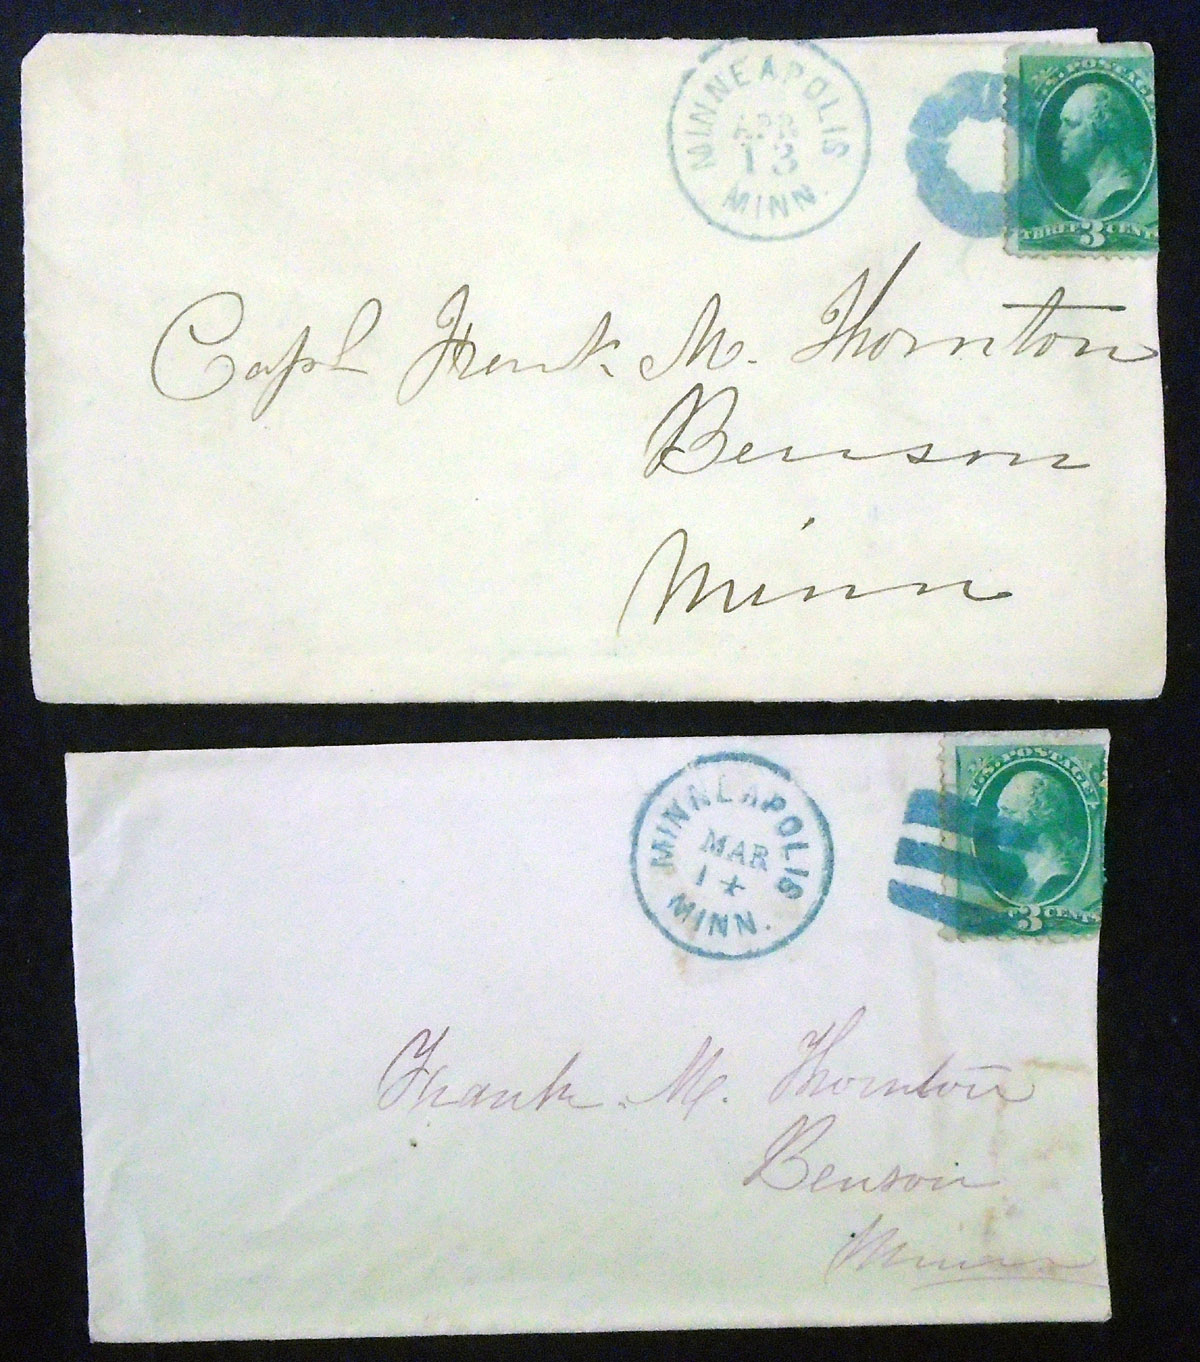 MINNEAPOLIS
APR
13
MINN.
S. POSTAGE
THREE 3 CENTS
Capt Frank M. Thornton
Benson
Minn
MINNEAPOLIS
MAR
1
MINN.
U.S. POSTAGE
3 CENTS
Frank M. Thornton
Benson
Minn